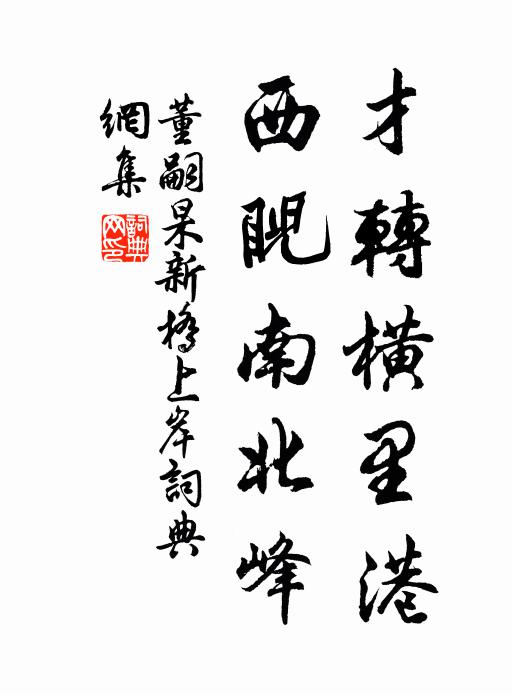 才轉橫里港
西睨南北峰
董嗣杲新橋上岸詞典
網集
詞典
网印